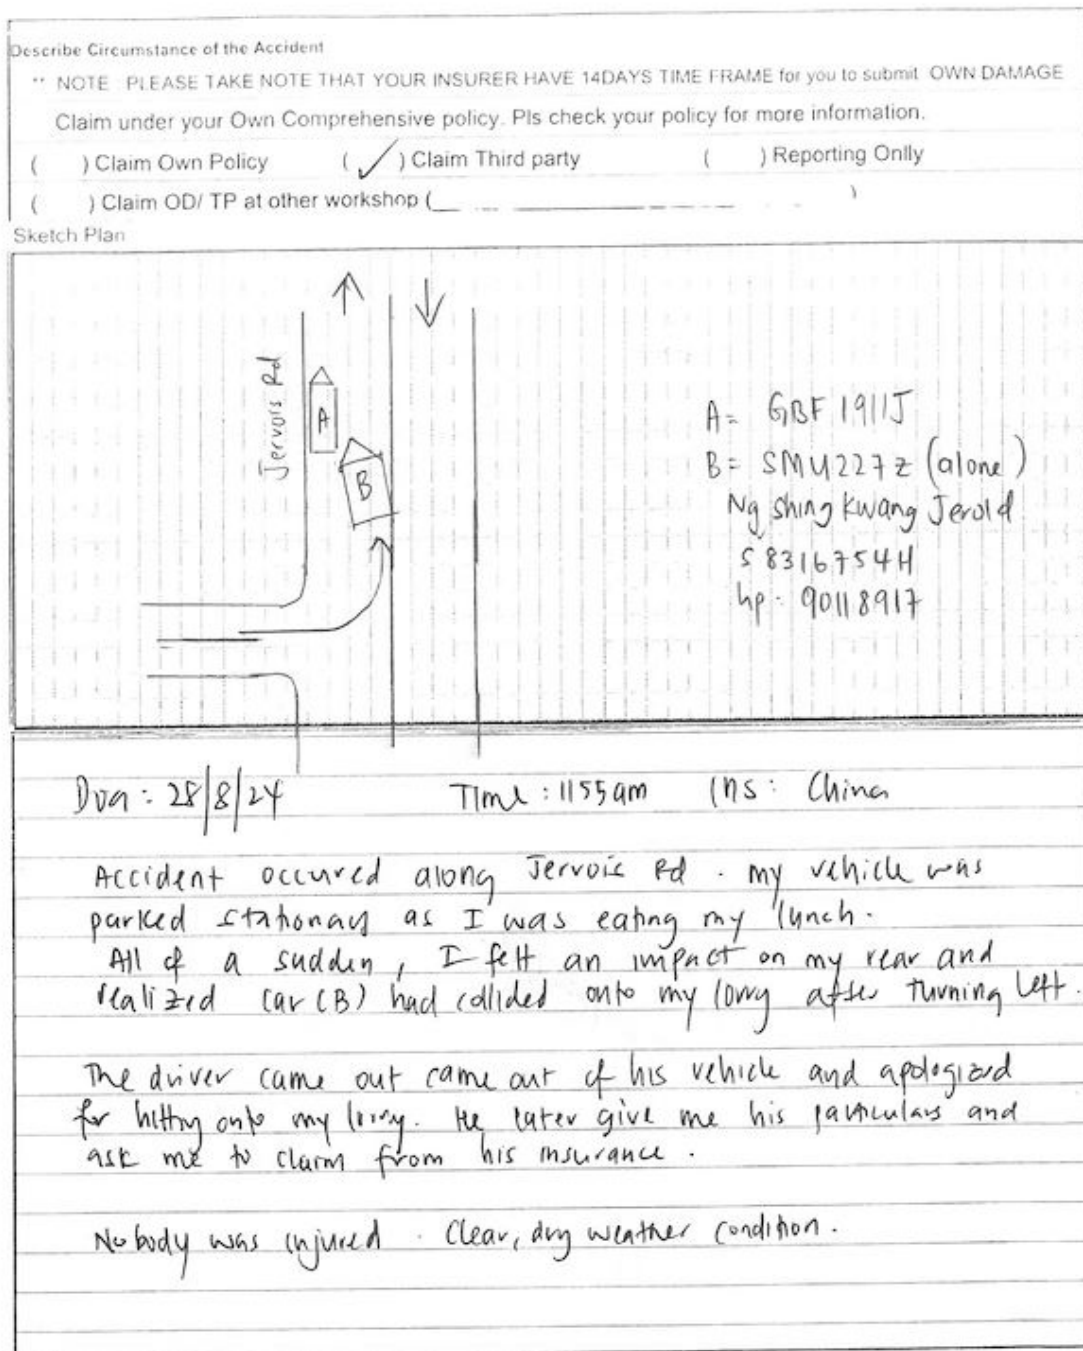 Describe Circumstance of the Accident
** NOTE : PLEASE TAKE NOTE THAT YOUR INSURER HAVE 14DAYS TIME FRAME for you to submit OWN DAMAGE
Claim under your Own Comprehensive policy. Pls check your policy for more information.
( ) Claim Own Policy ( ✓ ) Claim Third party ( ) Reporting Onlly
( ) Claim OD/ TP at other workshop (____________)
Sketch Plan
Jervois Rd
A
B
A= GBF 1911J
B= SMU227Z (alone)
Ng Shing Kwang Jerold
S8316754H
hp: 90118917
DOA: 28/8/24 Time: 1155am Ins: China
Accident occured along Jervois Rd. my vehicle was
parked stationary as I was eating my lunch.
All of a sudden, I felt an impact on my rear and
realized car (B) had collided onto my lorry after turning left.
The driver came out came out of his vehicle and apologized
for hitting onto my lorry. He later give me his particulars and
ask me to claim from his insurance.
Nobody was injured. Clear, dry weather condition.